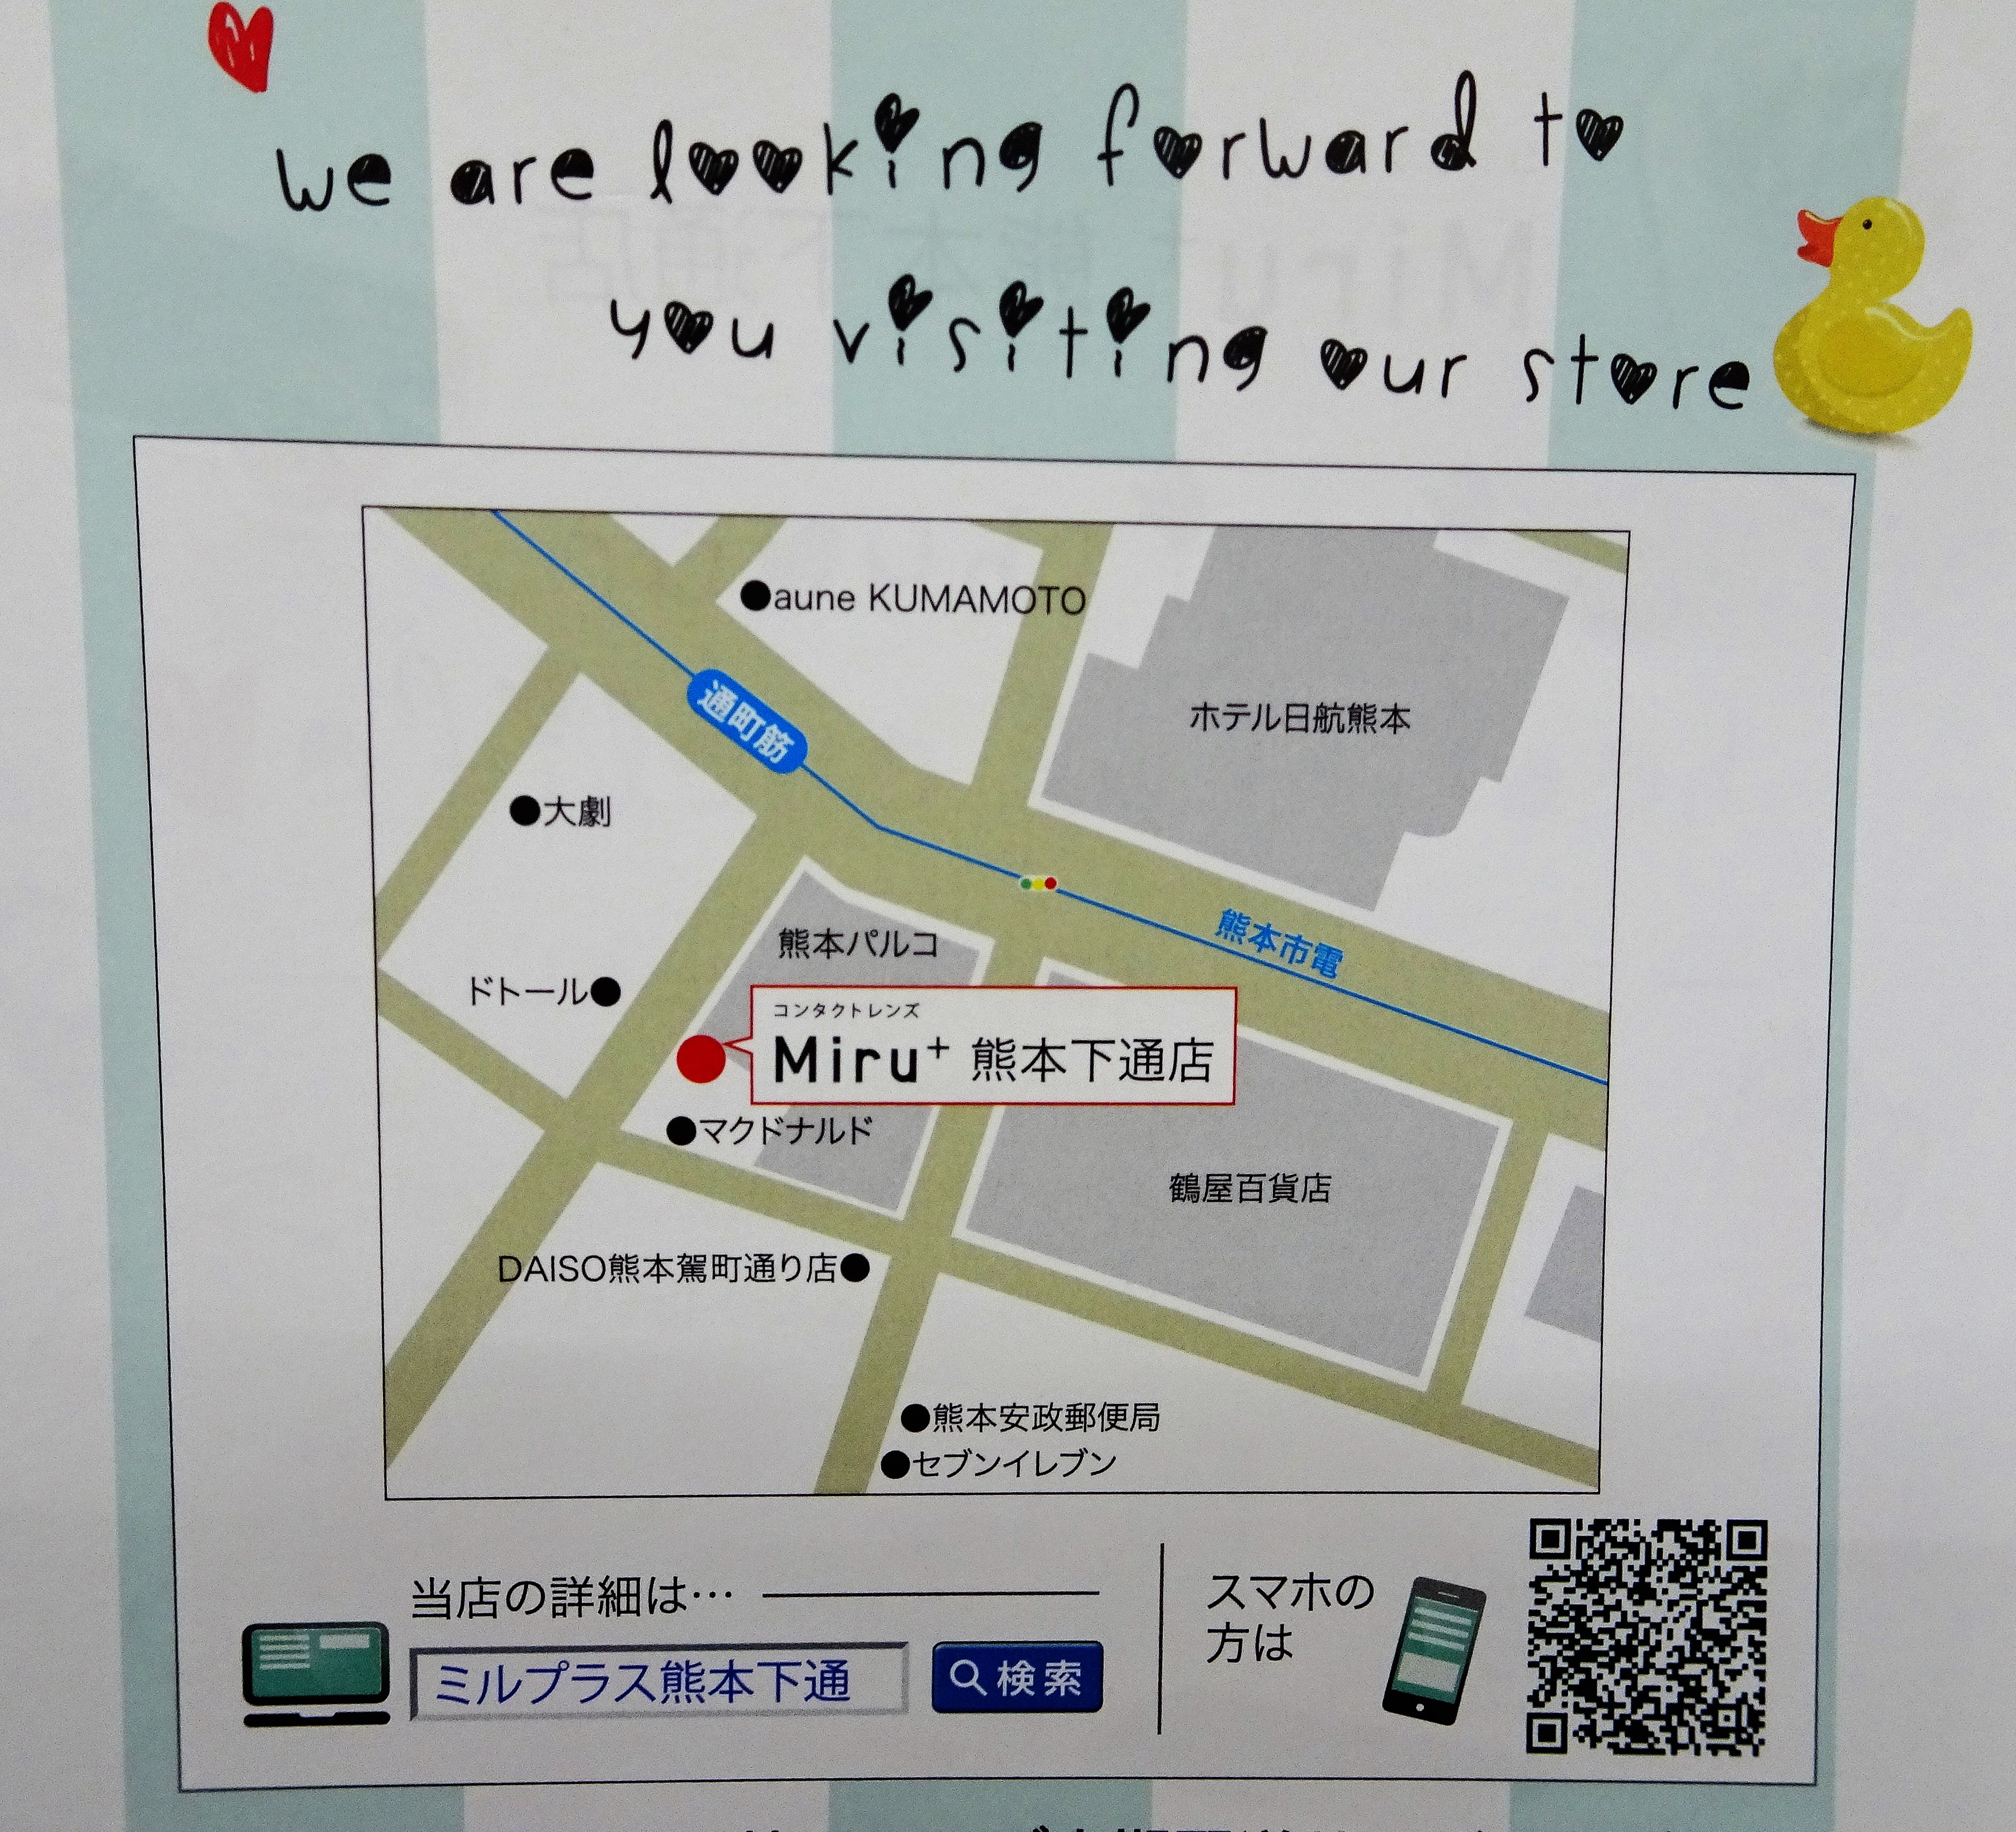 we are looking forward to
you visiting our store
aune KUMAMOTO
通町筋
ホテル日航熊本
大劇
熊本パルコ
熊本市電
ドトール
コンタクトレンズ
Miru+ 熊本下通店
マクドナルド
鶴屋百貨店
DAISO熊本駕町通り店
熊本安政郵便局
セブンイレブン
当店の詳細は…
ミルプラス熊本下通
検索
スマホの
方は